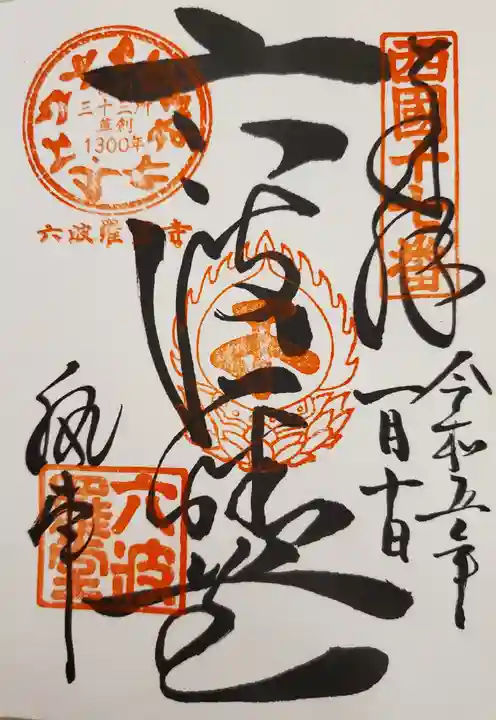 西國十七番
奉拝
令和五年
一月十日
六波羅堂
三十三所
草創
1300年
六波羅蜜寺
執事
六波
羅堂